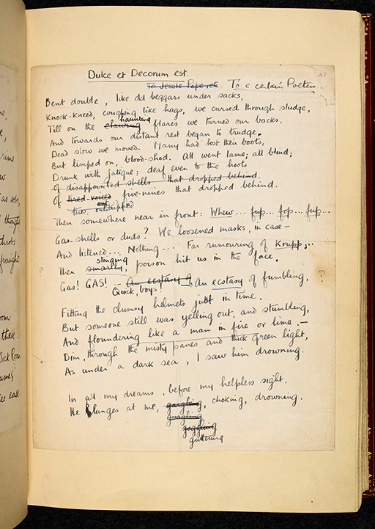 Dulce et Decorum est.
To Jessie Pope etc To a certain Poetess.
Bent double, like old beggars under sacks,
Knock-kneed, coughing like hags, we cursed through sludge,
haunting
Till on the flares we turned our backs.
And towards our distant rest began to trudge.
Dead slow we moved. Many had lost their boots,
But limped on, blood-shod. All went lame; all blind;
Drunk with fatigue; deaf even to the hoots
Of disappointed shells that dropped behind.
Of five-nines that dropped behind.
Then somewhere near in front: Whew... fup... fop... fup...
Gas shells or duds? We loosened masks, in case —
And listened... Nothing... Far rumouring of Krupp;..
stinging
Then smartly, poison hit us in the face.
Gas! GAS! — An ecstasy of fumbling,
Quick, boys!
Fitting the clumsy helmets just in time.
But someone still was yelling out, and stumbling,
And floundering like a man in fire or lime. —
Dim, through the misty panes and thick green light,
As under a dark sea, I saw him drowning.
In all my dreams, before my helpless sight,
He plunges at me, gargling, choking, drowning.
gurgling
goggling
guttering